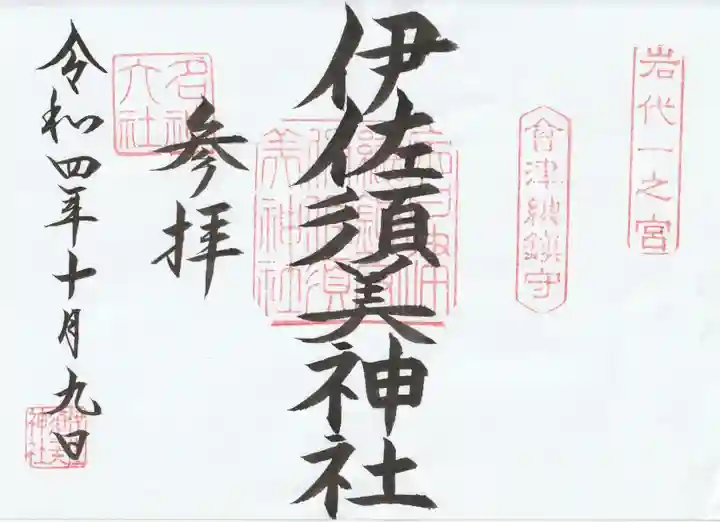 岩代一之宮
會津総鎮守
伊佐須美神社
参拝
名神大社
令和四年十月九日